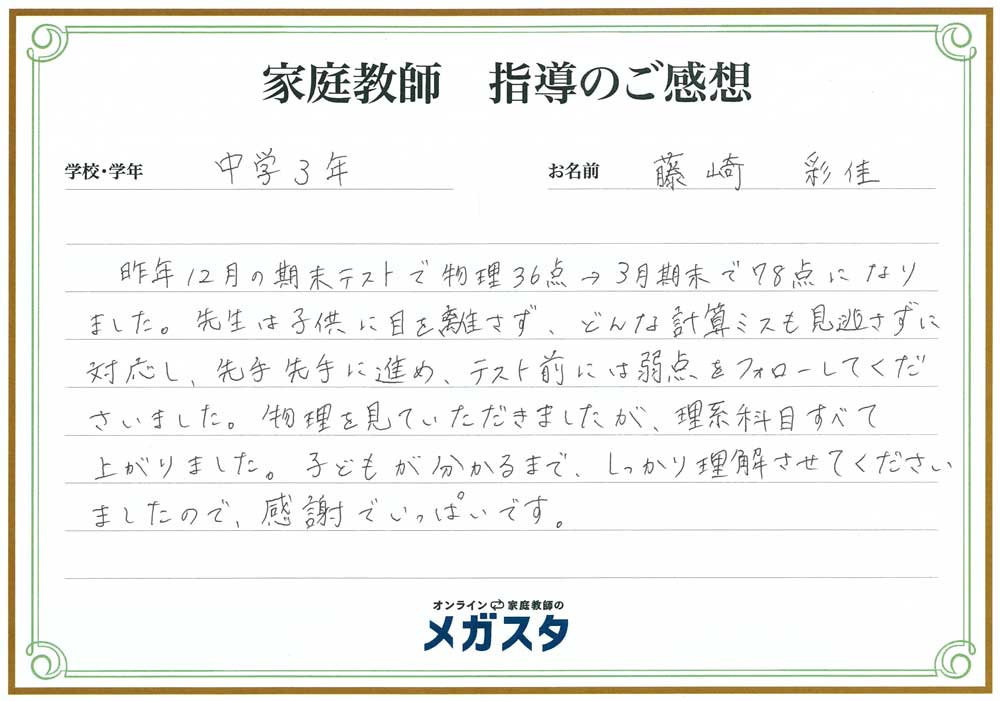 家庭教師 指導のご感想
学校・学年 中学3年 お名前 藤崎 彩佳
昨年12月の期末テストで物理36点→3月期末で78点になり
ました。先生は子供に目を離さず、どんな計算ミスも見逃さずに
対応し、先手先手に進め、テスト前には弱点をフォローしてくだ
さいました。物理を見ていただきましたが、理系科目すべて
上がりました。子どもが分かるまで、しっかり理解させてください
ましたので、感謝でいっぱいです。
オンライン 家庭教師の
メガスタ